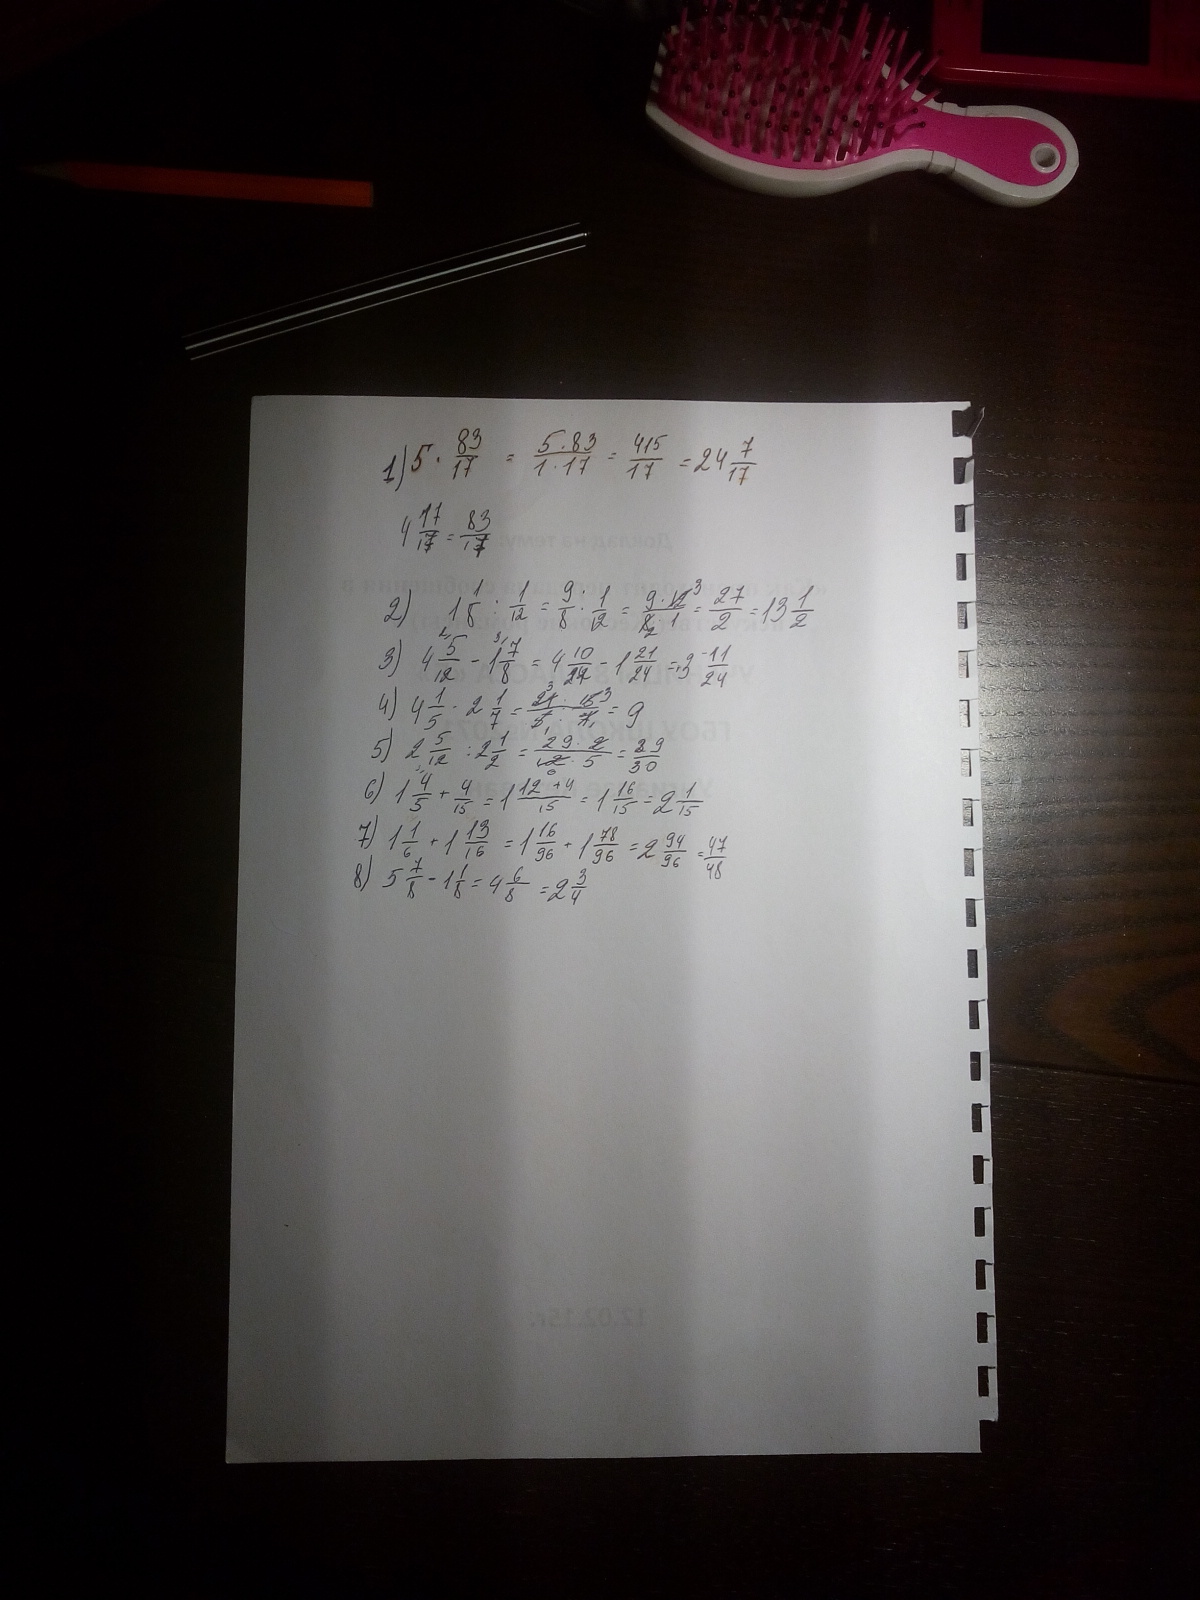 1) 5 · 83/17 = 5·83/1·17 = 415/17 = 24 7/17
4 17/17 = 83/17
2) 1 1/8 : 1/12 = 9/8 : 1/12 = 9·12/8·1 = 27/2 = 13 1/2
3) 4 5/12 - 1 7/8 = 4 10/24 - 1 21/24 = 3 -11/24
4) 4 1/5 · 2 1/7 = 21·15/5·7 = 9
5) 2 5/12 : 2 1/2 = 29·2/12·5 = 29/30
6) 1 4/5 + 4/15 = 1 12+4/15 = 1 16/15 = 2 1/15
7) 1 1/6 + 1 13/16 = 1 16/96 + 1 78/96 = 2 94/96 = 47/48
8) 5 7/8 - 1 1/8 = 4 6/8 = 2 3/4
Доклад на тему:
12.02.15г.